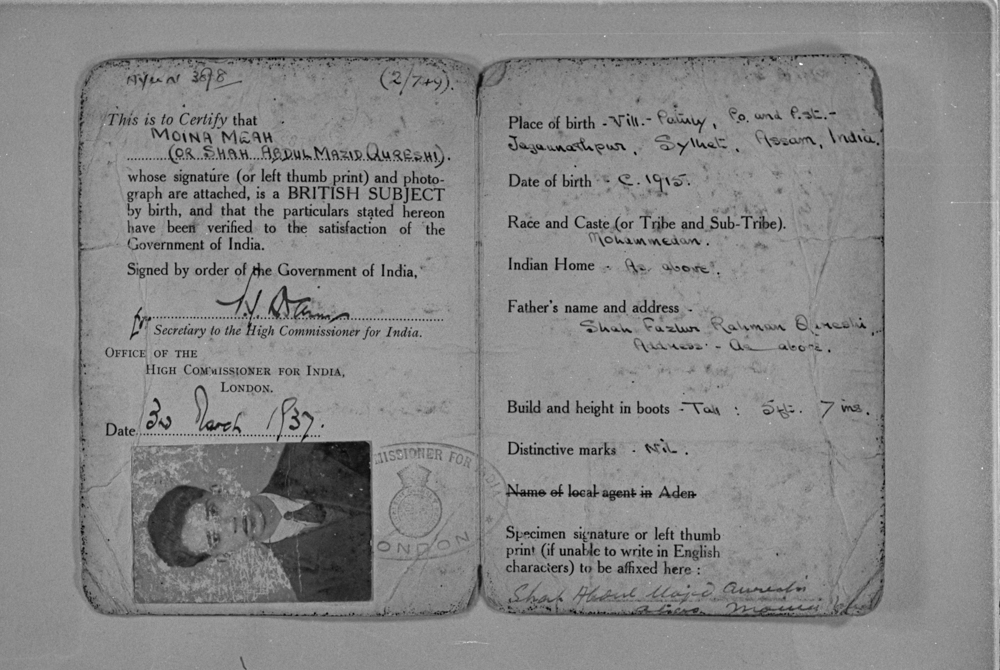 3898
(2/744).
This is to Certify that
MOINA MEAH
(OR SHAH ABDUL MAZID QURESHI).
whose signature (or left thumb print) and photo-
graph are attached, is a BRITISH SUBJECT
by birth, and that the particulars stated hereon
have been verified to the satisfaction of the
Government of India.
Signed by order of the Government of India,
for
Secretary to the High Commissioner for India.
OFFICE OF THE
HIGH COMMISSIONER FOR INDIA,
LONDON.
Date 3rd March 1937.
MISSIONER FOR INDIA
LONDON
Place of birth - Vill. - Patuly, P.O. and P.St. -
Jagannathpur, Sylhet, Assam, India.
Date of birth - C. 1915.
Race and Caste (or Tribe and Sub-Tribe).
Mohammedan.
Indian Home - As above.
Father's name and address -
Shah Fazlur Rahman Qureshi,
Address: - As above.
Build and height in boots - Tall : 5ft. 7 ins.
Distinctive marks - Nil.
Name of local agent in Aden
Specimen signature or left thumb
print (if unable to write in English
characters) to be affixed here :
Shah Abdul Majid Qureshi
alias Moina